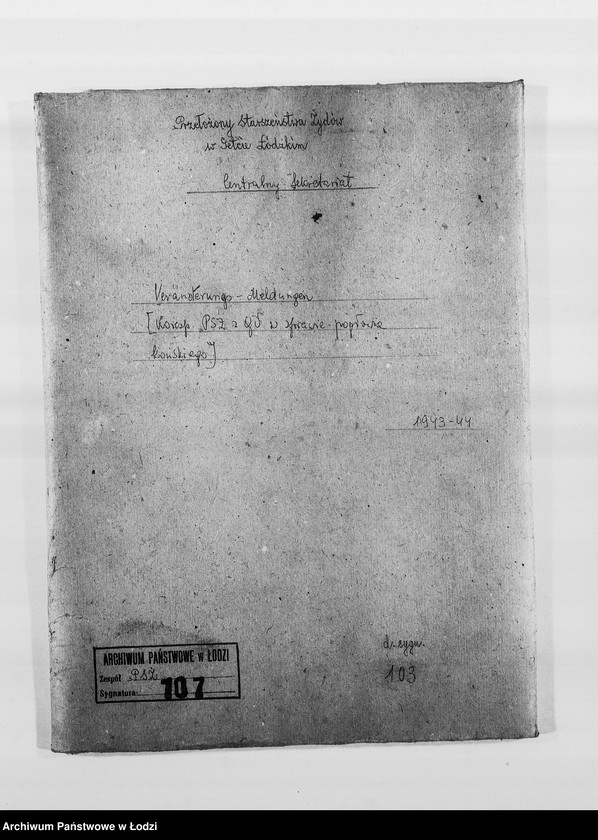 Przełożony Starszeństwa Żydów
w Getcie Łódzkim
Centralny Sekretariat
Veränderungs - Meldungen
[Koresp. PSŻ z GV w sprawie pogłowia
końskiego]
1943-44
ARCHIWUM PAŃSTWOWE w ŁODZI
Zespół PSŻ
Sygnatura: 107
d. sygn.
103
Archiwum Państwowe w Łodzi